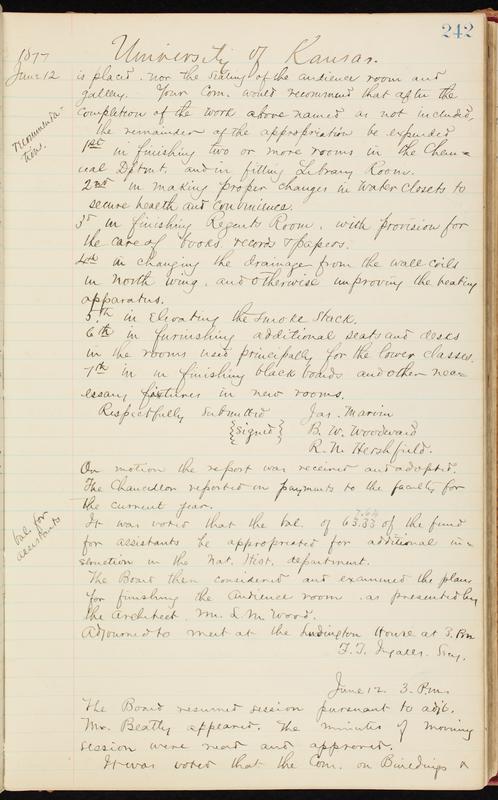 242
University of Kansas.
1877
June 12
is placed, nor the seating of the audience room and
gallery. Your Com. would recommend that after the
completion of the work above named as not included,
the remainder of the appropriation be expended
recommenda-
tion.
1st in finishing two or more rooms in the Chem-
ical Dptmt, and in fitting Library Room.
2nd in making proper changes in water closets to
secure health and convenience.
3d in finishing Regents Room, with provision for
the care of books, records & papers.
4th in changing the drainage from the wall coils
in North wing, and otherwise improving the heating
apparatus.
5th in Elevating the Smoke Stack.
6th in furnishing additional seats and desks
in the rooms used principally for the lower classes.
7th in in finishing black boards and other nec-
essary fixtures in new rooms.
Respectfully Submitted Jas. Marvin
{signed} B. W. Woodward
R. N. Hershfield.
On motion the report was received and adopted.
The Chancellor reported in payments to the faculty for
the current year.
bal. for
assistants
It was voted that the bal. of 63.33 of the fund
for assistants be appropriated for additional in-
struction in the Nat. Hist. department.
The Board then considered and examined the plans
for finishing the audience room, as presented by
the Architect, Mr. L. M. Wood.
Adjourned to meet at the Ludington House at 3. P.m
F. T. Ingalls. Secy.
June 12. 3. P.m.
The Board resumed session pursuant to adjt.
Mr. Beatty appeared. The minutes of morning
session were read and approved.
It was voted that the Com. on Buildings